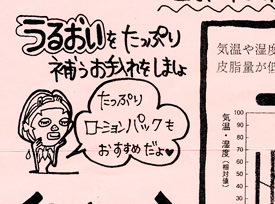 うるおいをたっぷり
補うお手入れをしましょ
たっぷり
ローションパックも
おすすめだよ♥
気温や湿度
皮脂量が低
気温・湿度(相対値)
100
90
80
70
60
50
40